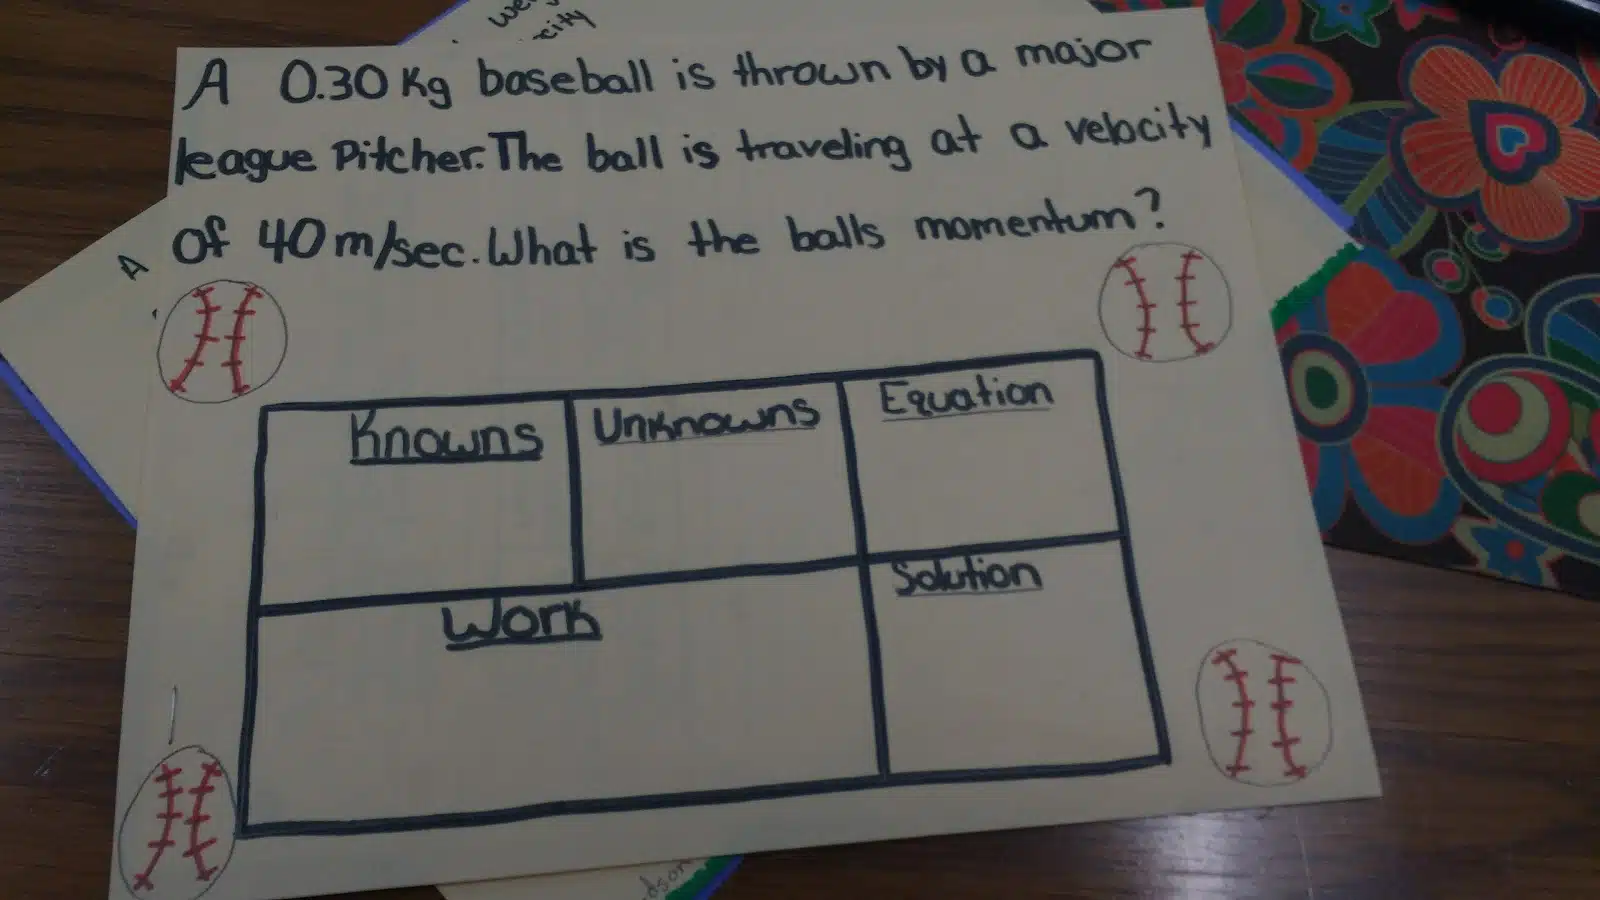 A 0.30 Kg baseball is thrown by a major
league Pitcher. The ball is traveling at a velocity
of 40 m/sec. What is the balls momentum?
Knowns
Unknowns
Equation
Work
Solution
A